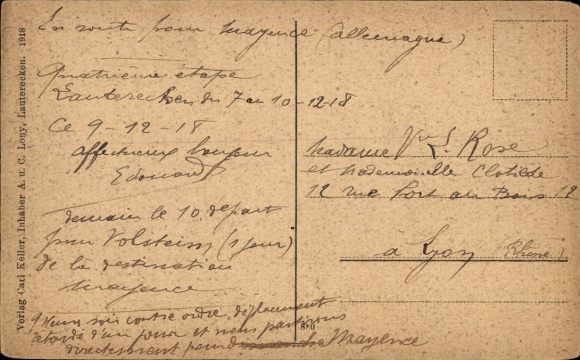 En route pour Mayence (Allemagne)
Quatrième étape
Lauterecken du 7 au 10-12-18
Ce 9-12-18
Affectueux bonjour
Edouard
demain le 10. départ
pour Volstein (1 jour)
de là destination
Mayence
soir contre ordre, déplacement
retardé d'un jour et nous partirons
directement pour Mayence
Madame Vve Rose
et Mademoiselle Clotilde
12 rue Port au Bois 12
a Lyon (Rhône)
880
Verlag Carl Keller, Inhaber A. u. C. Lony, Lauterecken. 1918